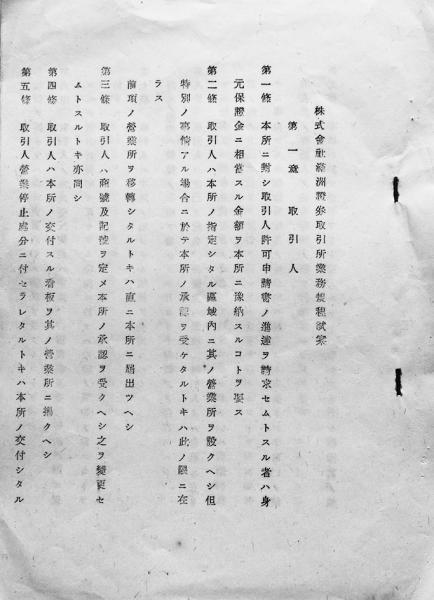 株式會社滿洲證券取引所業務規程試案
第一章　取引人
第一條　本所ニ對シ取引人許可申請書ノ進達ヲ請求セムトスル者ハ身
元保證金ニ相當スル金額ヲ本所ニ豫納スルコトヲ要ス
第二條　取引人ハ本所ノ指定シタル區域內ニ其ノ營業所ヲ設クヘシ但
特別ノ事情アル場合ニ於テ本所ノ承認ヲ受ケタルトキハ此ノ限ニ在
ラス
前項ノ營業所ヲ移轉シタルトキハ直ニ本所ニ屆出ツヘシ
第三條　取引人ハ商號及記號ヲ定メ本所ノ承認ヲ受クヘシ之ヲ變更セ
ムトスルトキ亦同シ
第四條　取引人ハ本所ノ交付スル看板ヲ其ノ營業所ニ揭クヘシ
第五條　取引人營業停止處分ニ付セラレタルトキハ本所ノ交付シタル